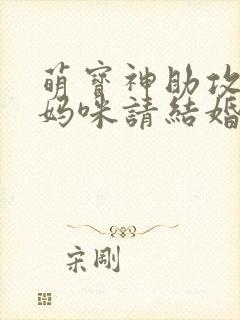 萌寶神助攻
媽咪請結婚
宋剛